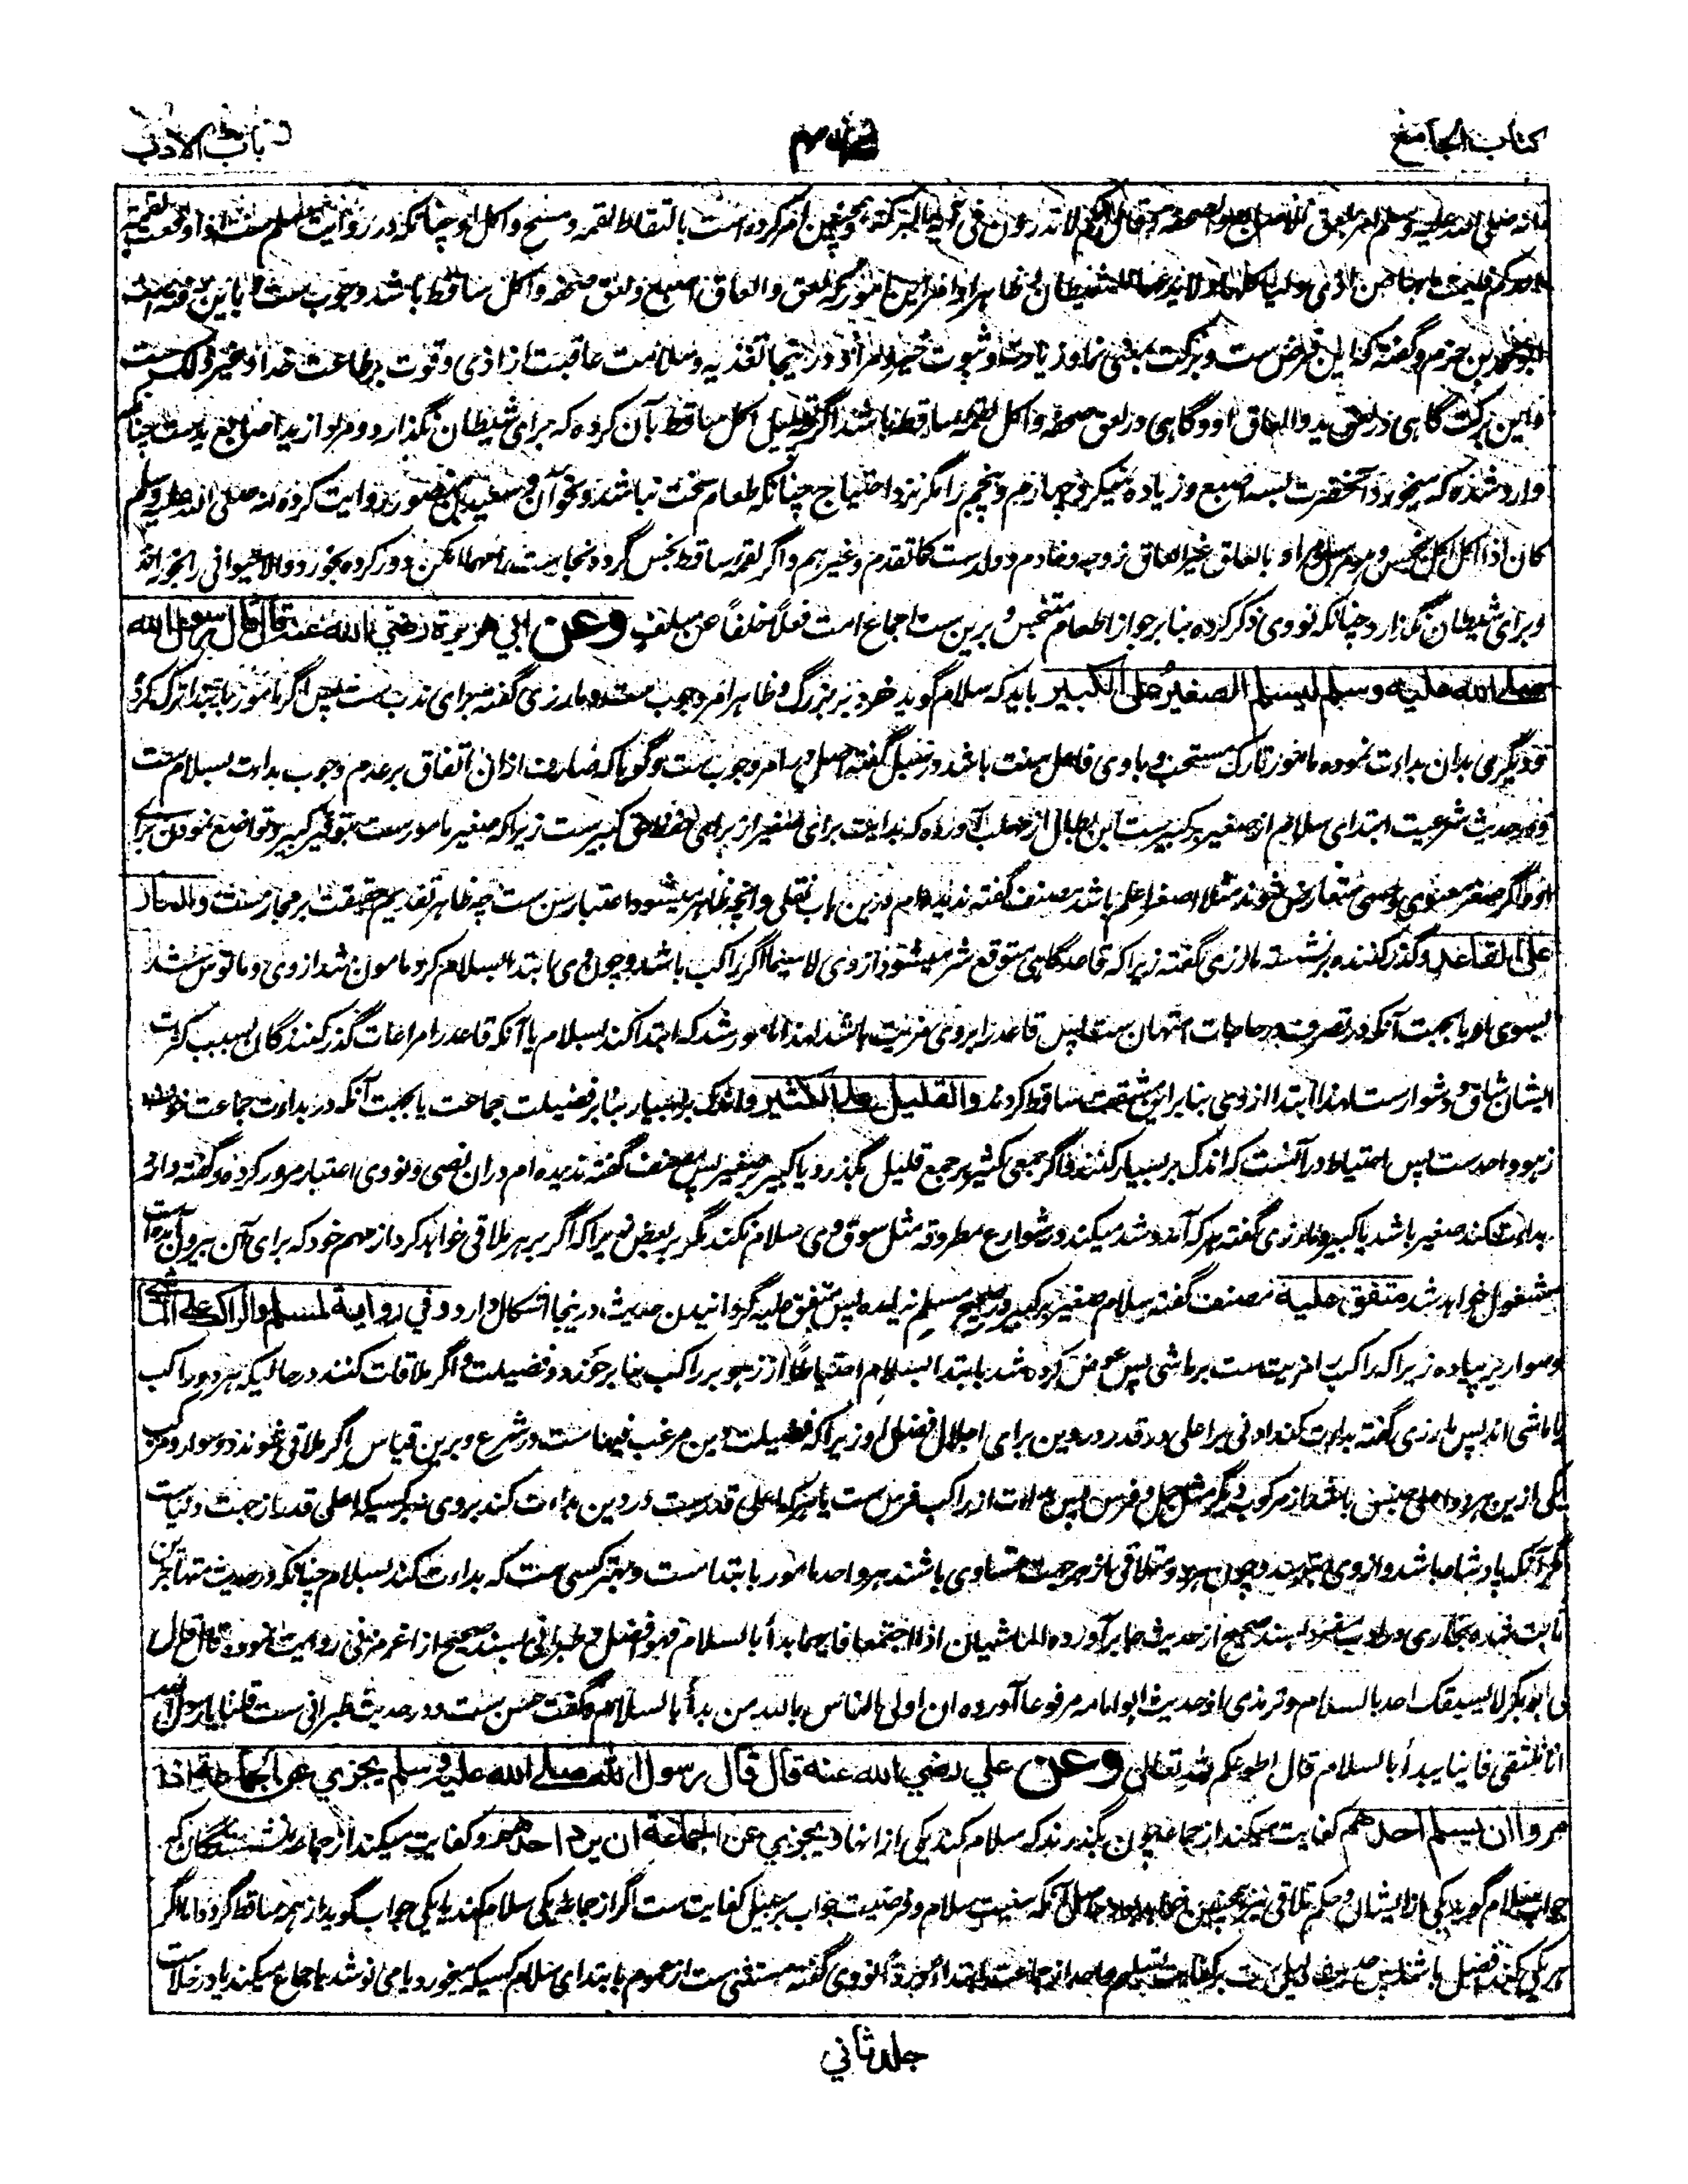 کتاب الجامع
باب الادب
صلی الله علیه وسلم امر بلعق الاصابع والصحفه وقال انکم لا تدرون فی ایه البرکة وهمچنین امر کرده است بالتقاط لقمه و مسح و اکل او چنانکه در روایت مسلم ست اذا وقعت لقمة
احدکم فلیمط ما بها من اذی ولیاکلها ولا یدعها للشیطان و ظاهر اوامر این امور که لعق و العاق اصبع و لعق صحفه و اکل ساقط باشد وجوب ست و باین رفته است
ابومحمد بن حزم و گفته که این فرض ست و برکت بمعنی نما و زیادت و ثبوت خیر و مراد در ینجا تغذیه و سلامت عاقبت از اذی و قوت بر طاعت خدا و غیر ذلک ست
و این برکت گاهی در لعق ید و العاق او و گاهی در لعق صحفه و اکل لقمه ساقط باشد اگرچه تعلیل اکل ساقط بآن کرده که برای شیطان نگذارد و مراد از ید اصابع ید ست چنانکه
وارد شده که میخورد آنحضرت بسه اصبع و زیاده نمیکرد چهارم و پنجم را مگر نزد احتیاج چنانکه طعام سخت نباشد و نحو آن و سعید بن منصور روایت کرده انه صلی الله علیه وسلم
کان اذا اکل اکل بخمس و مرسل او بالعاق غیر العاق زوجه و خادم و ولد ست کما تقدم و غیرهم و اگر لقمه ساقط نجس گردد نجاست را مهما امکن دور کرده بخورد والا حیوانی را بخوراند
و برای شیطان نگذارد چنانکه نووی ذکر کرده بنا بر جواز اطعام متنجس و برین ست اجماع امت فعلًا خلفًا عن سلف وعن ابي هريرة رضي الله عنه قال قال رسول الله
صلى الله عليه وسلم ليسلم الصغير على الكبير باید که سلام گوید خرد بر بزرگ و ظاهر امر وجوب ست و مارزی گفته برای ندب ست پس اگر مامور بابتدا ترک کرد
و دیگری بدان بداءت نموده مامور تارک مستحب و بادی فاعل سنت باشد و در سبل گفته اصل در امر وجوب ست و گویا که صارف از ان اتفاق بر عدم وجوب بداءت بسلام ست
و در حدیث شرعیت ابتدای سلام از صغیر بر کبیر ست ابن بطال از مهلب آورده که بداءت برای صغیر از برای حق کبیر ست زیرا که صغیر مامور ست بتوقیر کبیر و تواضع نمودن برای
او و اگر صغر معنوی و حسی متعارض شوند مثلا اصغر اعلم باشد مصنف گفته ندیده ام درین باب نقلی و انچه ظاهر میشود اعتبار سن ست چه ظاهر تقدیم حقیقت بر مجاز ست والمار
على القاعد و گذر کننده بر نشسته مارزی گفته زیرا که قاعد گاهی متوقع شر میشود از وی لاسیما اگر راکب باشد و چون وی ابتدا بسلام کرد مامون شد از وی و مانوس شد
بسوی او یا بجهت آنکه در تصرف در حاجات امتهان ست پس قاعد را بروی مزیت باشد لهذا مامور شد که ابتدا کند بسلام یا آنکه قاعد را مراعات گذر کنندگان بسبب کثرت
ایشان شاق و دشوار ست لهذا ابتدا از وی بنا بر این مشقت ساقط کردند والقليل على الكثير و اندک بر بسیار بنا بر فضیلت جماعت یا بجهت آنکه در بداءت جماعت خوف
زهو واحد ست پس احتیاط در آنست که اندک بر بسیار کنند و اگر جمعی کثیر بر جمع قلیل بگذرد یا کبیر بر صغیر پس مصنف گفته ندیده ام در ان نصی و نووی اعتبار مرور کرده و گفته وارد
بداءت کند صغیر باشد یا کبیر و مارزی گفته هر که آمد و شد میکند در شوارع مطروقه مثل سوق وی سلام نکند مگر بر بعض زیرا که اگر بر هر ملاقی خواهد کرد از مهم خود که برای آن بیرون آمده است
مشغول خواهد شد متفق عليه مصنف گفته سلام صغیر بر کبیر در صحیح مسلم نیامده پس متفق علیه گردانیدن حدیث درینجا اشکال دارد وفي رواية لمسلم والراكب على الماشي
و سوار بر پیاده زیرا که راکب را مزیت ست بر ماشی پس عوض کرده شد بابتدا بسلام احتیاطًا از زهو بر راکب بنا بر حوز دو فضیلت و اگر ملاقات کنند در حالیکه هر دو راکب
یا ماشی اند پس مارزی گفته بداءت کند ادنی بر اعلی در قدر دین برای اجلال فضل او زیرا که فضیلت دین مرغب فیها ست در شرع و برین قیاس اگر ملاقی شوند دو سوار و مرکب
یکی ازین هر دو اعلی جنس باشد از مرکوب دیگر مثل جمل و فرس پس بداءت از راکب فرس ست یا هر که اعلی قدر ست در دین بداءت کند بروی هر کسیکه اعلی قدر از جهت دنیا ست
مگر آنکه پادشاه باشد و از وی بترسند و چون هر دو متلاقی از هر جهت متساوی باشند هر واحد مامور بابتدا ست و بهتر کسی ست که بداءت کند بسلام چنانکه در حدیث متهاجرین
ثابت شده بخاری در ادب مفرد بسند صحیح از حدیث جابر آورده الماشیان اذا اجتمعا فایهما بدأ بالسلام فهو افضل و طبرانی بسند صحیح از اغر مزنی روایت نموده قال قال
لی ابو بکر لا یسبقک احد بالسلام و ترمذی از حدیث ابو امامه مرفوعا آورده ان اولی الناس بالله من بدأ بالسلام و گفت حسن ست و در حدیث طبرانی ست قلنا یا رسول الله
انا نلتقی فاینا یبدأ بالسلام قال اطوعکم لله تعالی وعن علي رضي الله عنه قال قال رسول الله صلى الله عليه وسلم يجزي عن الجماعة اذا
مروا ان يسلم احدهم کفایت میکند از جماعه چون بگذرند که سلام کند یکی از انها ويجزي عن الجماعة ان يرد احدهم و کفایت میکند از جماعه نشستگان که
جواب سلام گوید یکی از ایشان و حکم تلاقی نیز همچنین خواهد بود حاصل آنکه سنیت سلام و فرضیت جواب بر سبیل کفایت ست اگر از جماعه یکی سلام کند یا یکی جواب گوید از همه ساقط گردد اما اگر
هر یکی کند افضل باشد نووی گفته مستثنی ست از عموم بابتدای سلام کسیکه میخورد یا می نوشد یا جماع میکند یا در خلاست
جلد ثاني